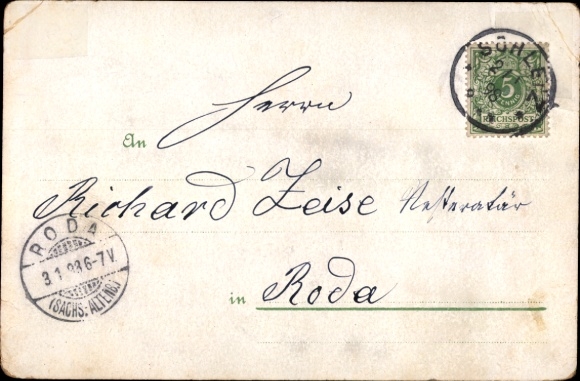 SCHLEIZ
5
REICHSPOST
Herrn
An
Richard Zeise
RODA
3.1.98 6-7V
(SACHS: ALTENB.)
in Roda